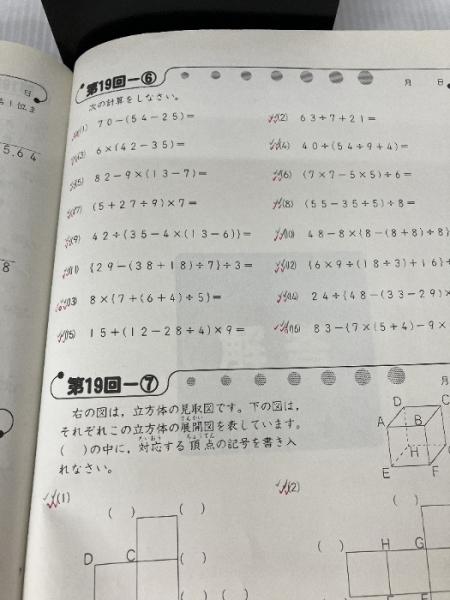 日
位ま
5.64
8
第19回−⑥
月 日
次の計算をしなさい。
(1) 70−(54−25)= (2) 63÷7+21=
(3) 6×(42−35)= (4) 40÷(54÷9+4)=
(5) 82−9×(13−7)= (6) (7×7−5×5)÷6=
(7) (5+27÷9)×7= (8) (55−35÷5)÷8=
(9) 42÷{35−4×(13−6)}= (10) 48−8×{8−(8+8)÷8}
(11) {29−(38+18)÷7}÷3= (12) {6×9÷(18÷3)+16}÷
(13) 8×{7+(6+4)÷5}= (14) 24÷{48−(33−29)×
(15) 15+(12−28÷4)×9= (16) 83−{7×(5+4)−9×
第19回−⑦
月
右の図は，立方体の見取図です。下の図は，
それぞれこの立方体の展開図を表しています。
( )の中に，対応する頂点の記号を書き入
れなさい。
D C
A B
H
E F
(1) (2)
( ) ( )
D C ( )
( ) H G